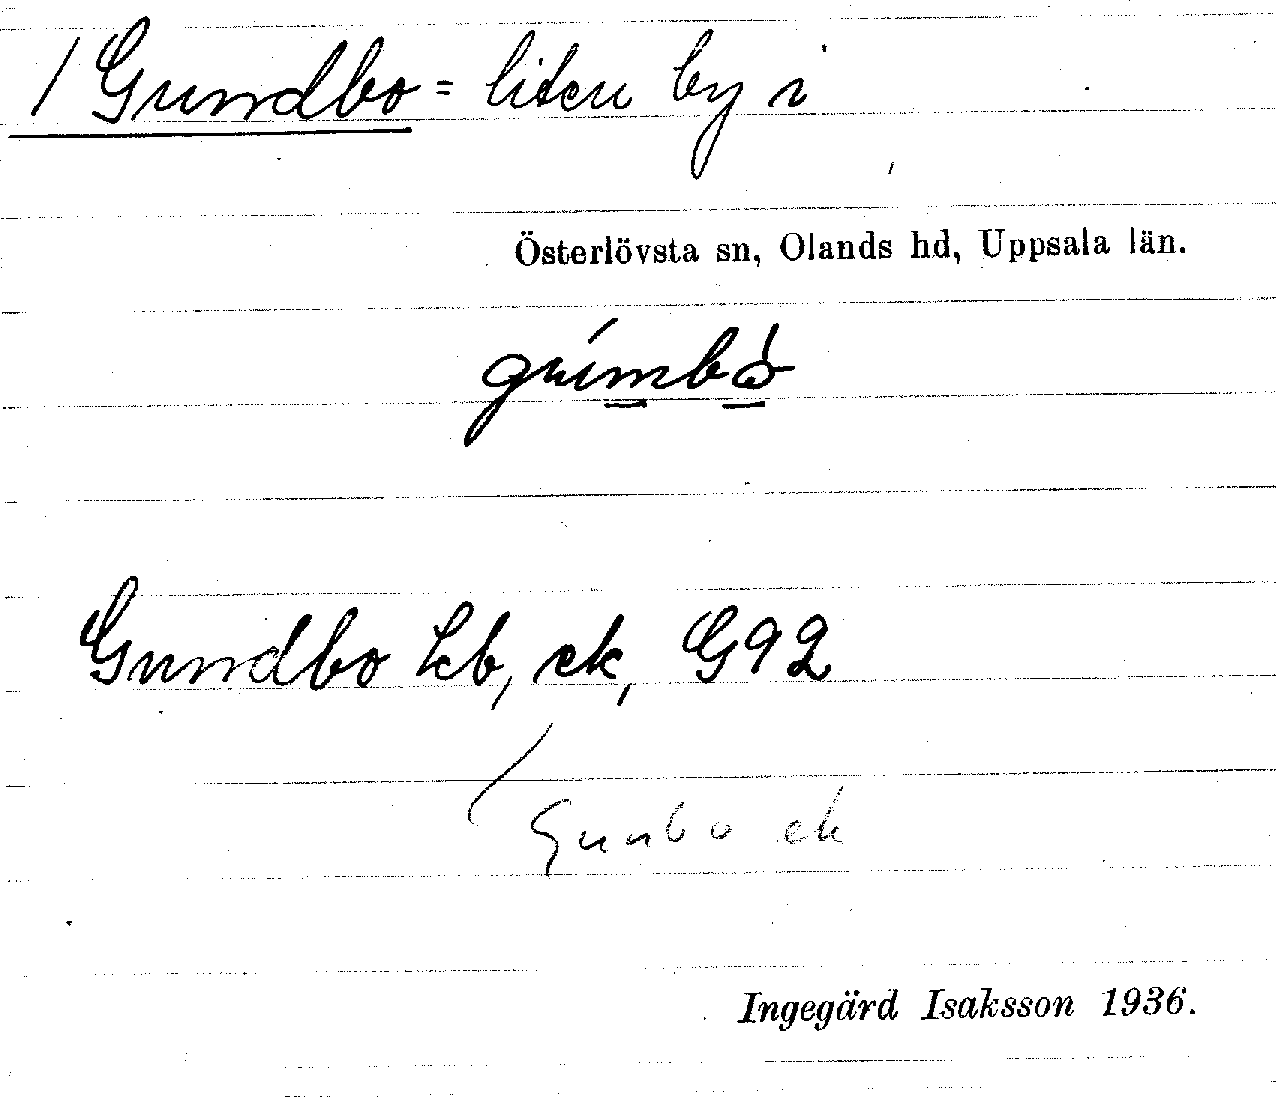 / Gundbo = liten by i
Österlövsta sn, Olands hd, Uppsala län.
Gundbo kb, ek, G92
Gunbo ek
Ingegärd Isaksson 1936.